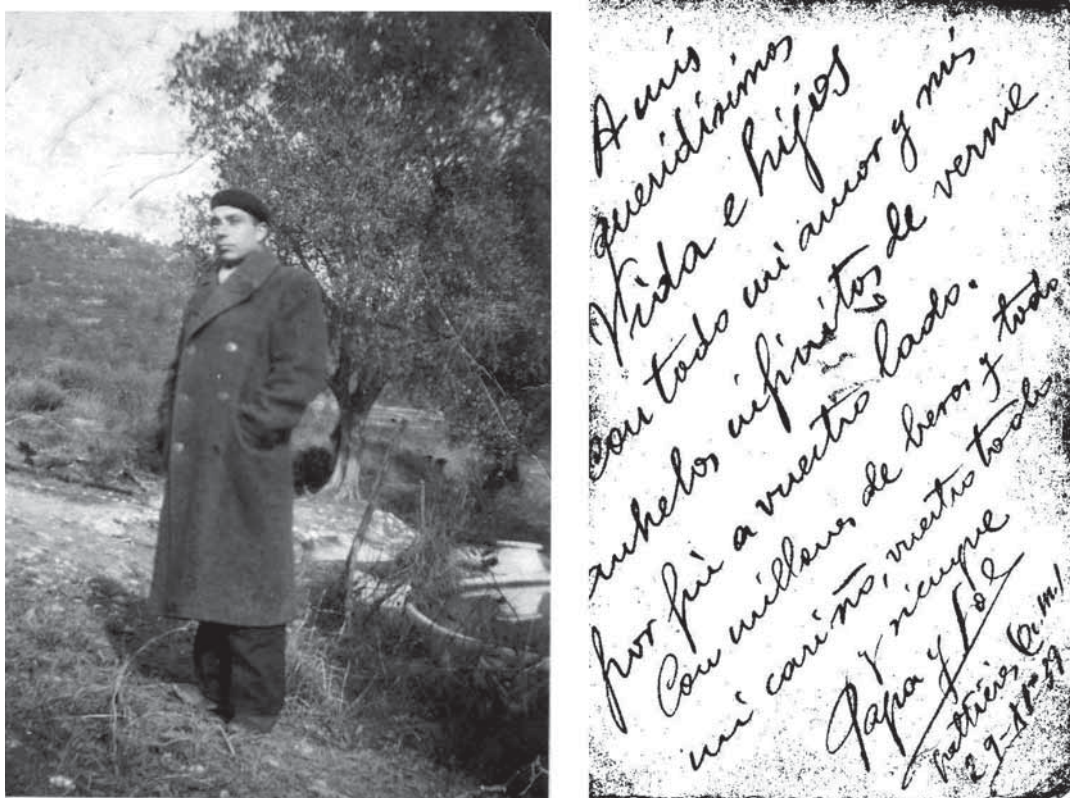 A mis
queridísimos
Vida e hijos
con todo mi amor y mis
anhelos infinitos de verme
por fin a vuestro lado.
Con millones de besos y todo
mi cariño, vuestro todo
y siempre
Papa y